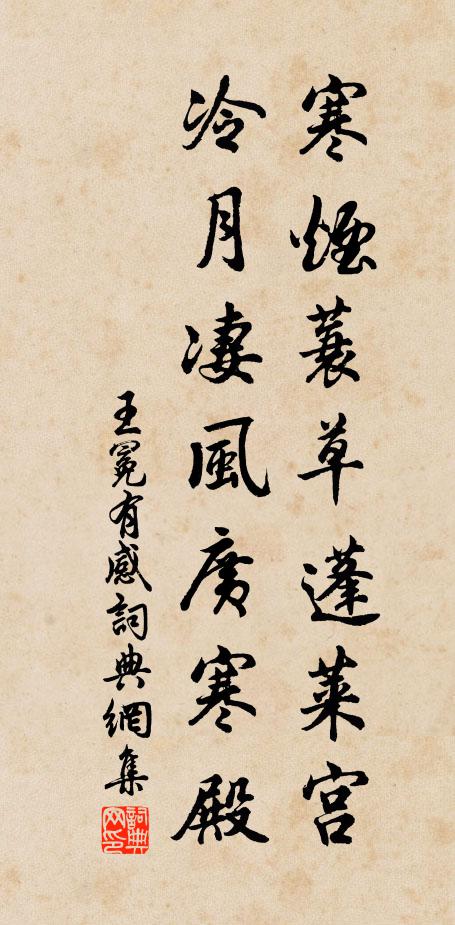 寒煙蓑草蓬萊宮
冷月凄風廣寒殿
王冕有感詞典網集
詞典網印